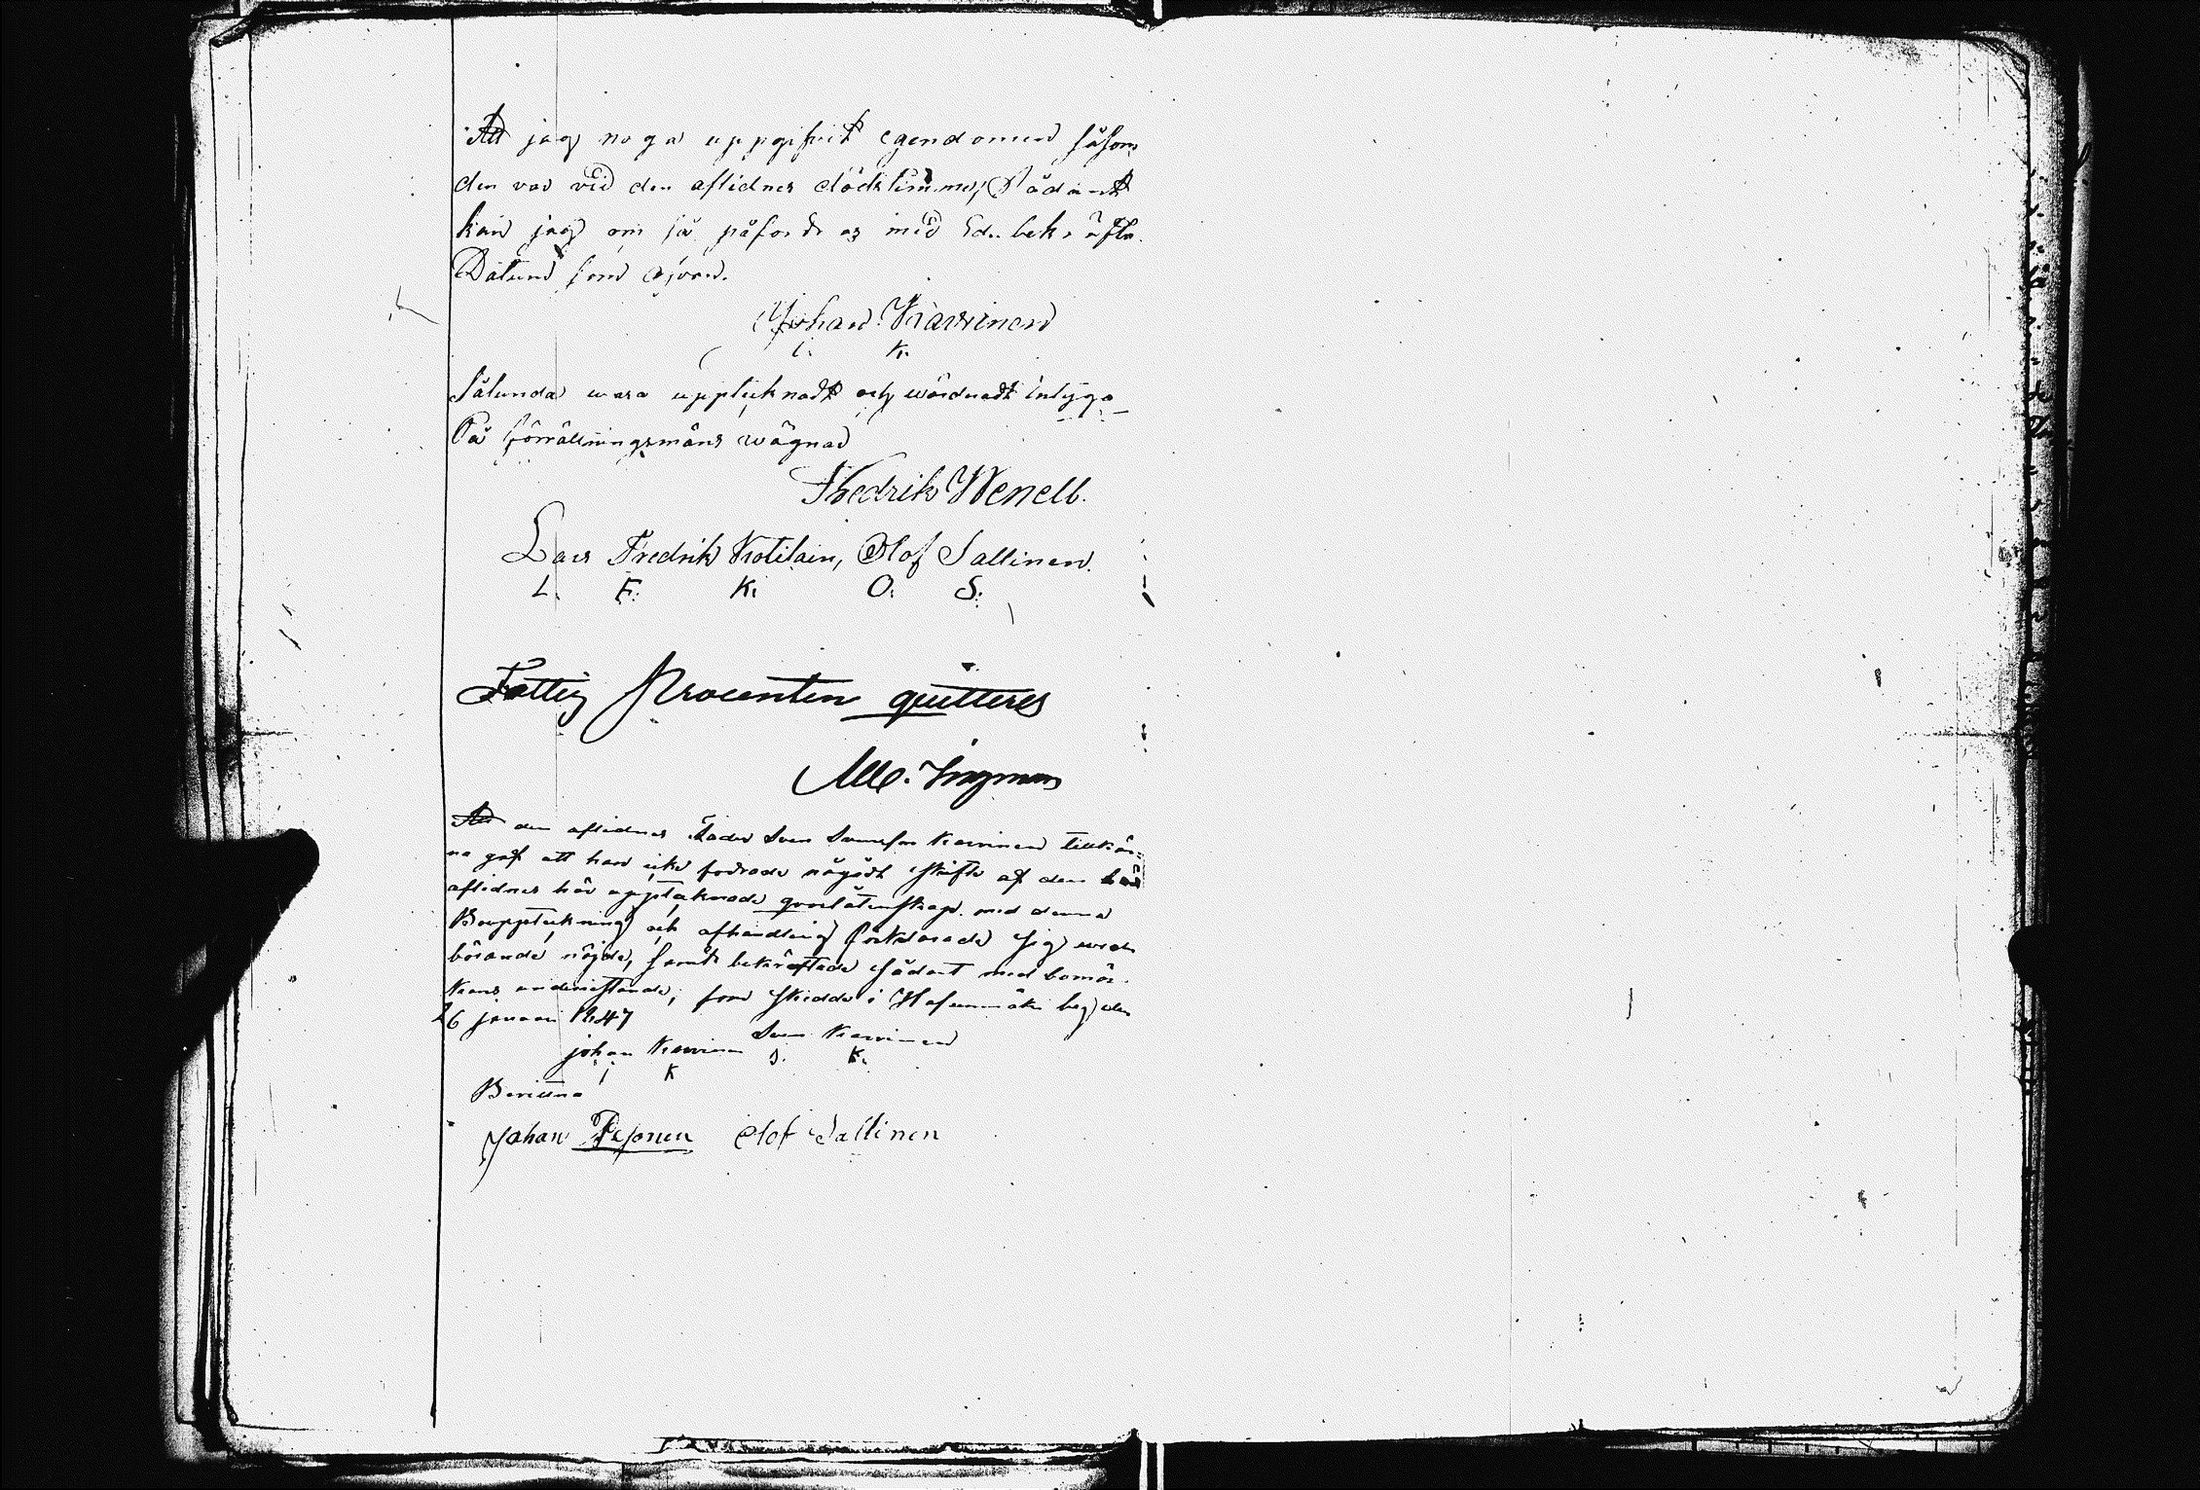 Att jag noga uppgifvit egendomen såsom
den var vid den aflidnes dödstimme, Sådant
kan jag om så påfordras med Ed bekräfta.
Datum som ofvan.
Johan Karvinen
I. K.
Sålunda vara upptecknadt och wärderadt intyga
På förrättningsmäns wägnar
Fredrik Wenell.
Lars Fredrik Kotilain, Olof Sallinen.
L. F. K. O. S.
Fattig Procenten quitteras
Alb. Ingman
Att den aflidnes Fader Sven Svensson Karvinen tillkän-
na gaf att han icke fordrade någodt skifte af den
aflidnes här upptecknade qvarlåtenskap med denna
Bouppteckning och afhandling förklarade sig
börande nöjde, samt bekräftade sådant med bomär-
kens understände, som skedde i den
26 januari 1847
Sven Karvinen
johan Karvinen S. K.
J K
Bevittna
Johan Pesonen Olof Sallinen